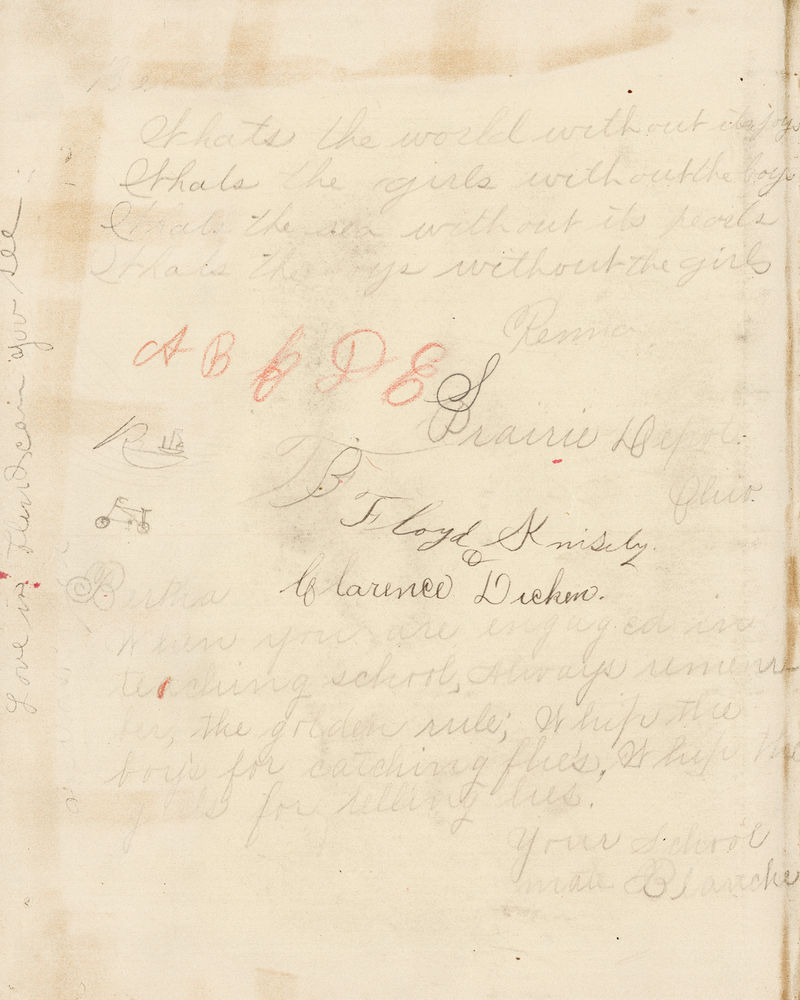 Whats the world without its joys
Whats the girls without the boys
Whats the sea without its pearls
Whats the boys without the girls
A B C D E
S
Prairie Depot.
Ohio.
B
Floyd Knisely.
Clarence Dicken.
Bertha
When you are engaged in
teaching school, Always remem
ber, the golden rule; Whip the
boys for catching flies, Whip the
girls for telling lies.
Your School
mate Blanche
Love in
can you see